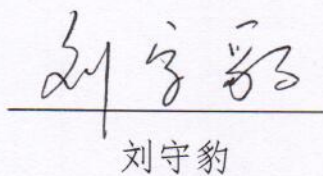 刘守豹
刘守豹